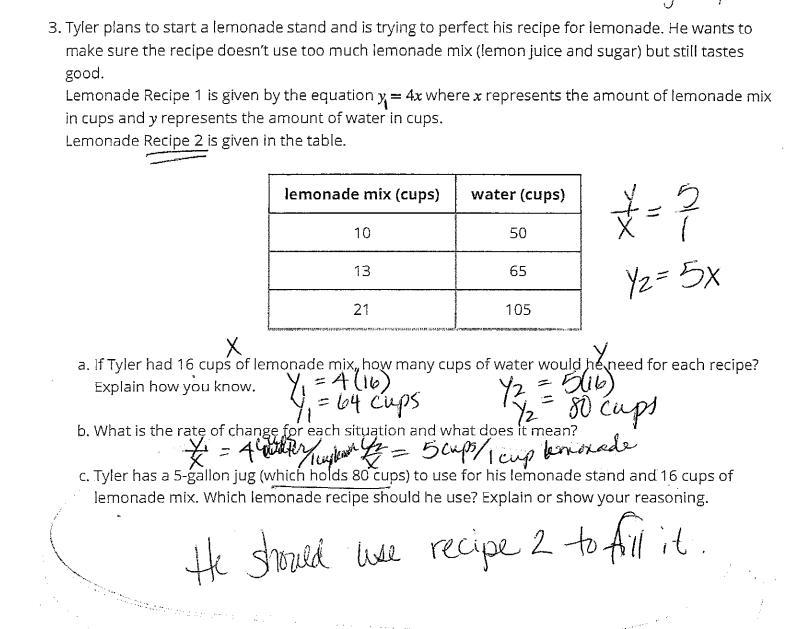 3. Tyler plans to start a lemonade stand and is trying to perfect his recipe for lemonade. He wants to
make sure the recipe doesn't use too much lemonade mix (lemon juice and sugar) but still tastes
good.
Lemonade Recipe 1 is given by the equation y₁ = 4x where x represents the amount of lemonade mix
in cups and y represents the amount of water in cups.
Lemonade Recipe 2 is given in the table.
lemonade mix (cups) water (cups)
10 50
13 65
21 105
y/x = 5/1
y2 = 5x
x y
a. If Tyler had 16 cups of lemonade mix, how many cups of water would he need for each recipe?
Explain how you know.
y₁ = 4(16) y2 = 5(16)
y₁ = 64 cups y2 = 80 cups
b. What is the rate of change for each situation and what does it mean?
y₁/x = 4 cups water/1 cup y2/x = 5 cups/1 cup lemonade
c. Tyler has a 5-gallon jug (which holds 80 cups) to use for his lemonade stand and 16 cups of
lemonade mix. Which lemonade recipe should he use? Explain or show your reasoning.
He should use recipe 2 to fill it.